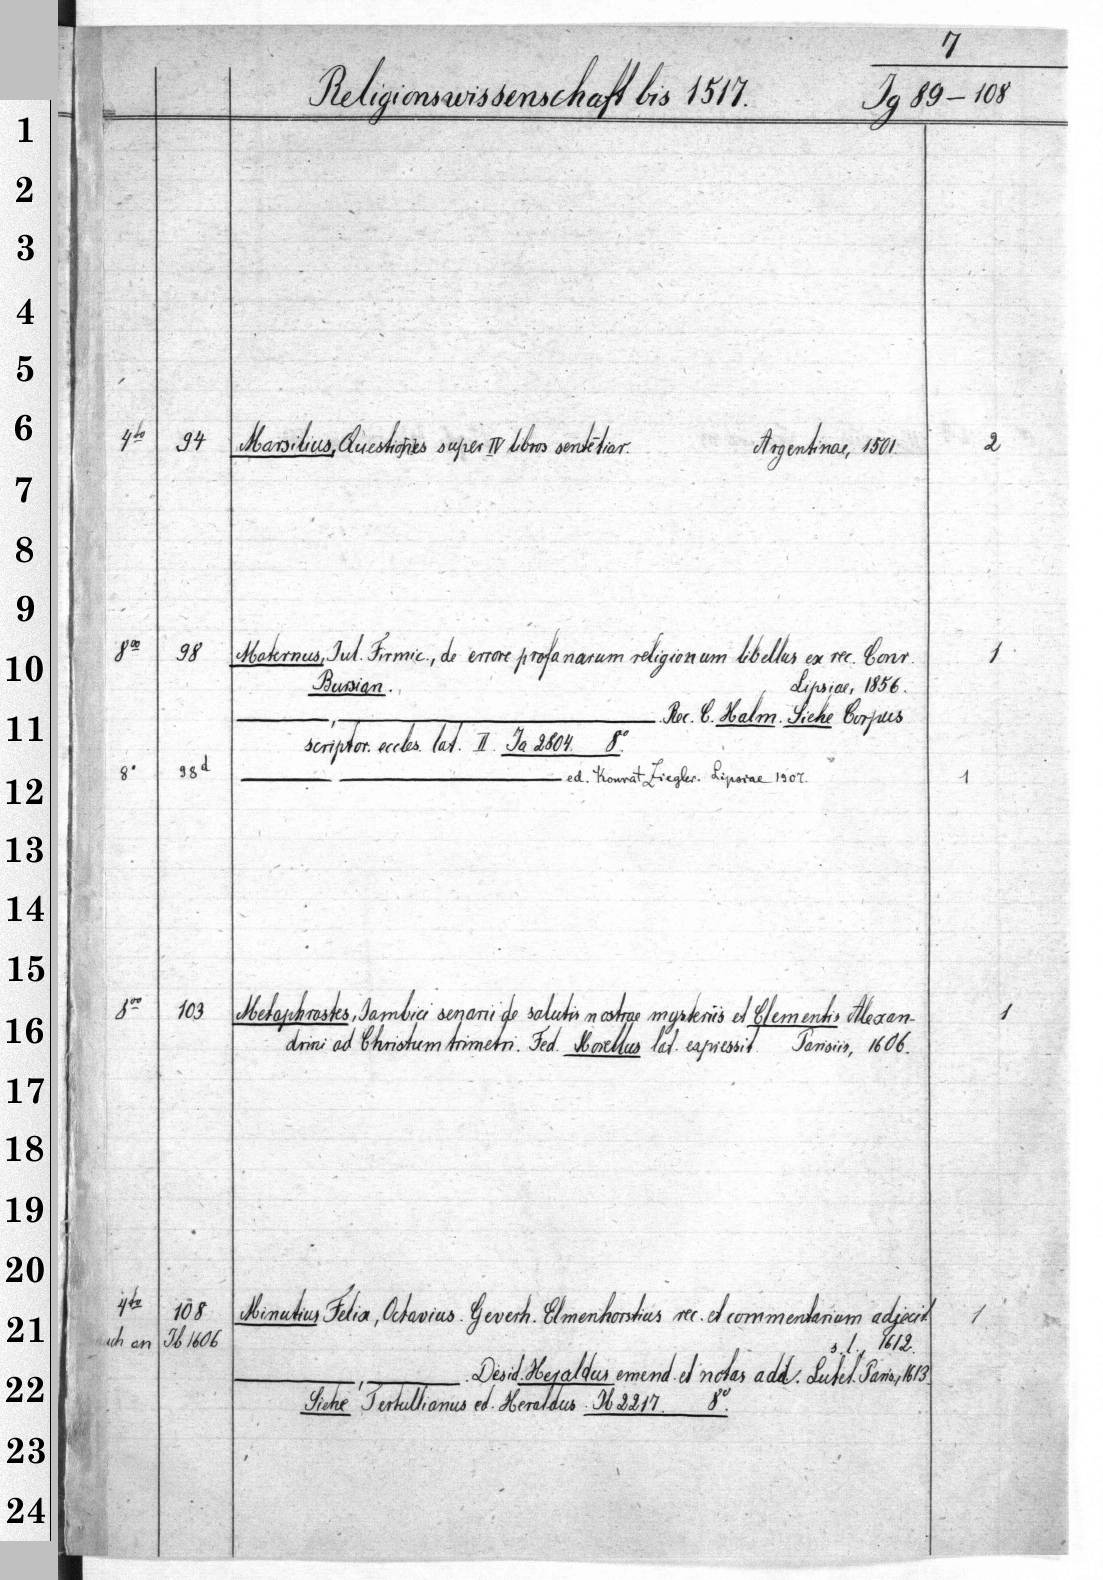 7
Religionswissenschaft bis 1517. Ig 89-108
1
2
3
4
5
6
7
8
9
10
11
12
13
14
15
16
17
18
19
20
21
22
23
24
4to 94 Marsilius, Questiones super IV libros sentētiar. Argentinae, 1501. 2
8vo 98 Maternus, Jul. Firmic., de errore profanarum religionum libellus ex rec. Conr. 1
Bursian. Lipsiae, 1856.
Rec. C. Halm. Siehe Corpus
scriptor. eccles. lat. II. Ia 2804. 8°.
8° 98d ed. Konrat Ziegler. Lipsiae 1907. 1
8vo 103 Metaphrastes, Iambici senarii de salutis nostrae mysteriis et Clementis Alexan- 1
drini ad Christum trimetri. Fed. Morellus lat. expressit. Parisiis, 1606.
4to 108 Minutius Felix, Octavius. Geverh. Elmenhorstius rec. et commentarium adjecit. 1
an Ib 1606 s. l., 1612.
Desid. Heraldus emend. et notas add. Lutet. Paris., 1613.
Siehe Tertullianus ed. Heraldus. Ib 2217. 8°.